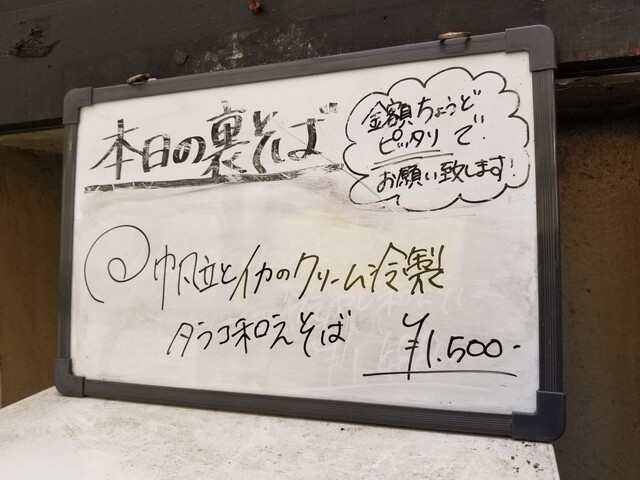 本日の裏そば
金額ちょうど
ピッタリで!
お願い致します!
帆立とイカのクリーム冷製
タラコ和えそば
¥1.500-